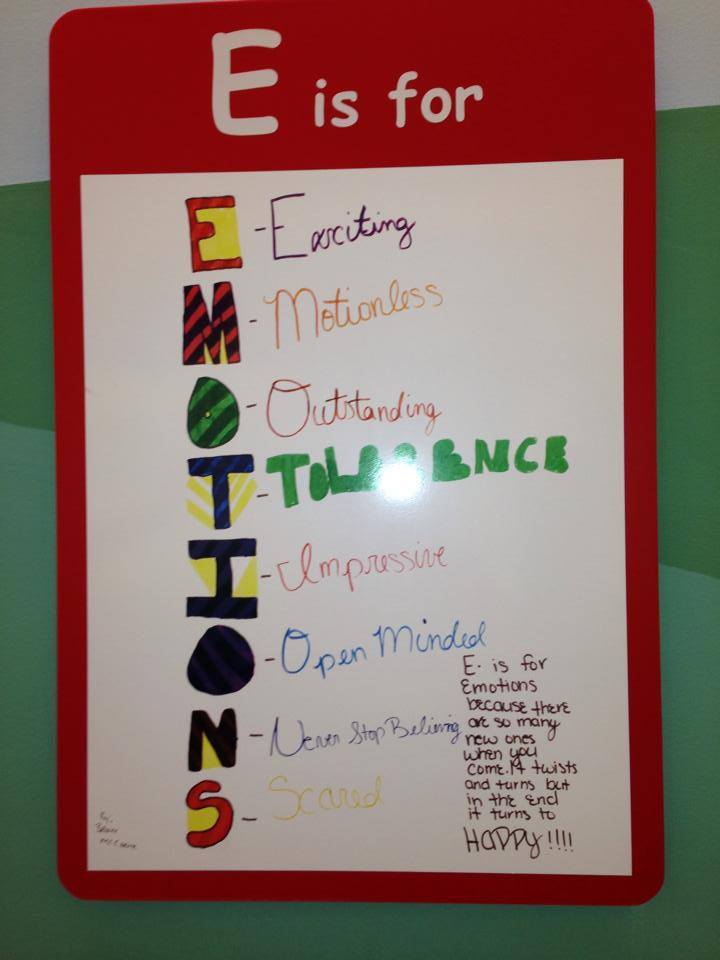 E is for
E - Exciting
M - Motionless
O - Outstanding
T - TOLERENCE
I - Impressive
O - Open Minded
N - Never Stop Believing
S - Scared
E. is for
Emotions
because there
are so many
new ones
when you
come. It twists
and turns but
in the end
it turns to
HAPPY!!!!
By,